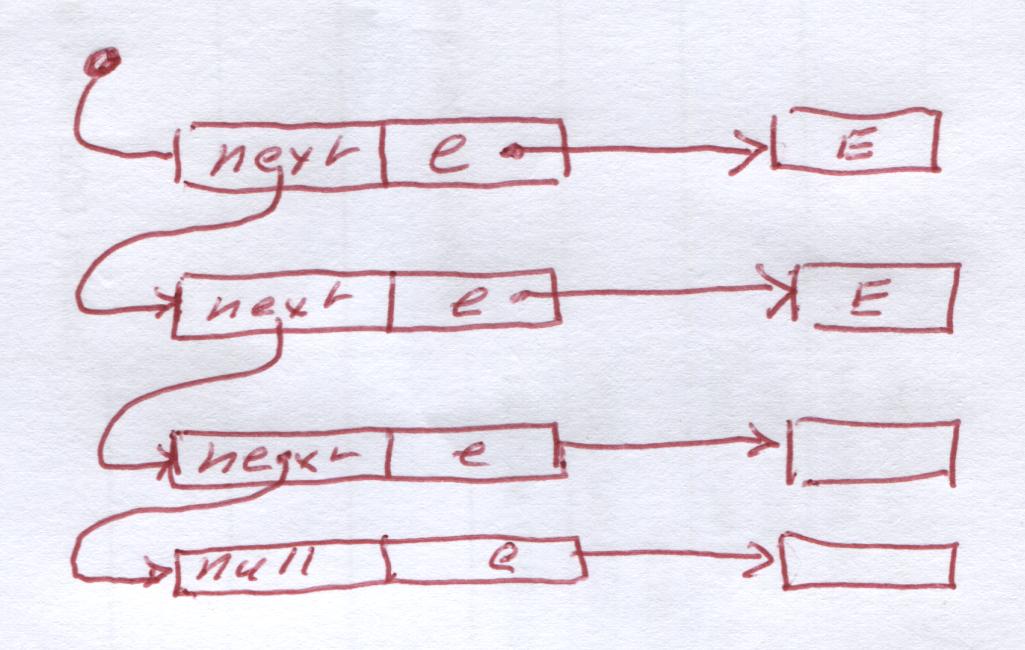 next e E
next e E
next e
null e